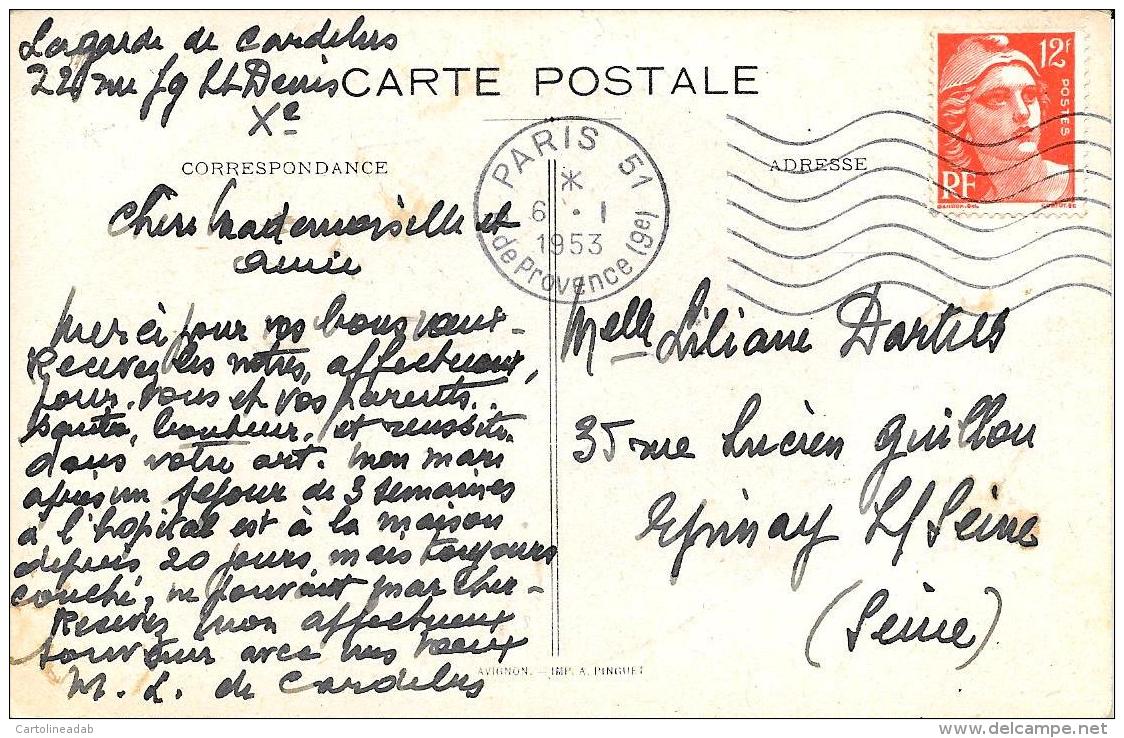 Lagarde de Cardelus
22, rue Fg St Denis
Xe
CARTE POSTALE
CORRESPONDANCE
ADRESSE
PARIS 51
6 - 1
1953
de Provence (9e)
12f
POSTES
RF
Chère Mademoiselle et
amie
Merci pour vos bons vœux -
Recevez les nôtres, affectueux,
pour vous et vos parents.
Santé, bonheur, et réussite
dans votre art. Mon mari
après un séjour de 3 semaines
à l'hôpital est à la maison
depuis 20 jours, mais toujours
couché, ne pouvant marcher -
Recevez mon affectueux
souvenir avec nos vœux
M. L. de Cardelus
Melle Liliane Dartels
35 rue Lucien Guillou
Epinay S/Seine
(Seine)
AVIGNON. — IMP. A. PINGUET
Cartolineadab
delcampe.net